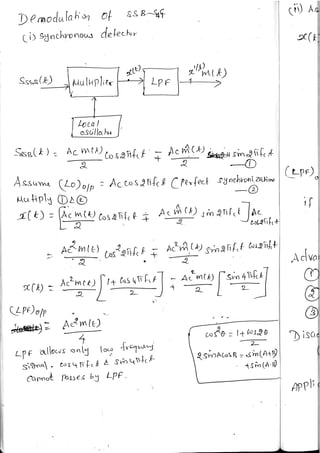 Demodulation Of SSB-SC
(i) Synchronous detector
SSSB(t)
Multiplier
x(t)
LPF
x'(t) m(t)
Local
oscillator
SSSB(t) = Ac m(t)/2 cos2πfct ∓ Ac m̂(t)/2 sin2πfct
①
Assume (LO)o/p = Ac cos2πfct (Perfect synchronization
②
Multiply ① & ②
x(t) = [Ac m(t)/2 cos2πfct ∓ Ac m̂(t)/2 sin2πfct] Ac cos2πfct
= Ac²m(t)/2 cos²2πfct ∓ Ac²m̂(t)/2 sin2πfct cos2πfct
x(t) = Ac²m(t)/2 [1+cos4πfct/2] ∓ Ac²m̂(t)/2 [sin4πfct/2]
(LPF)o/p
= Ac²m(t)/4
LPF allows only low frequency
signal. cos4πfct & sin4πfct
cannot passes by LPF.
cos²θ = 1+cos2θ/2
2sinAcosB = sin(A+B)
+sin(A-B)
(ii)
x(t
(LPF)o
if
Adva
①
②
③
Disa
Appli